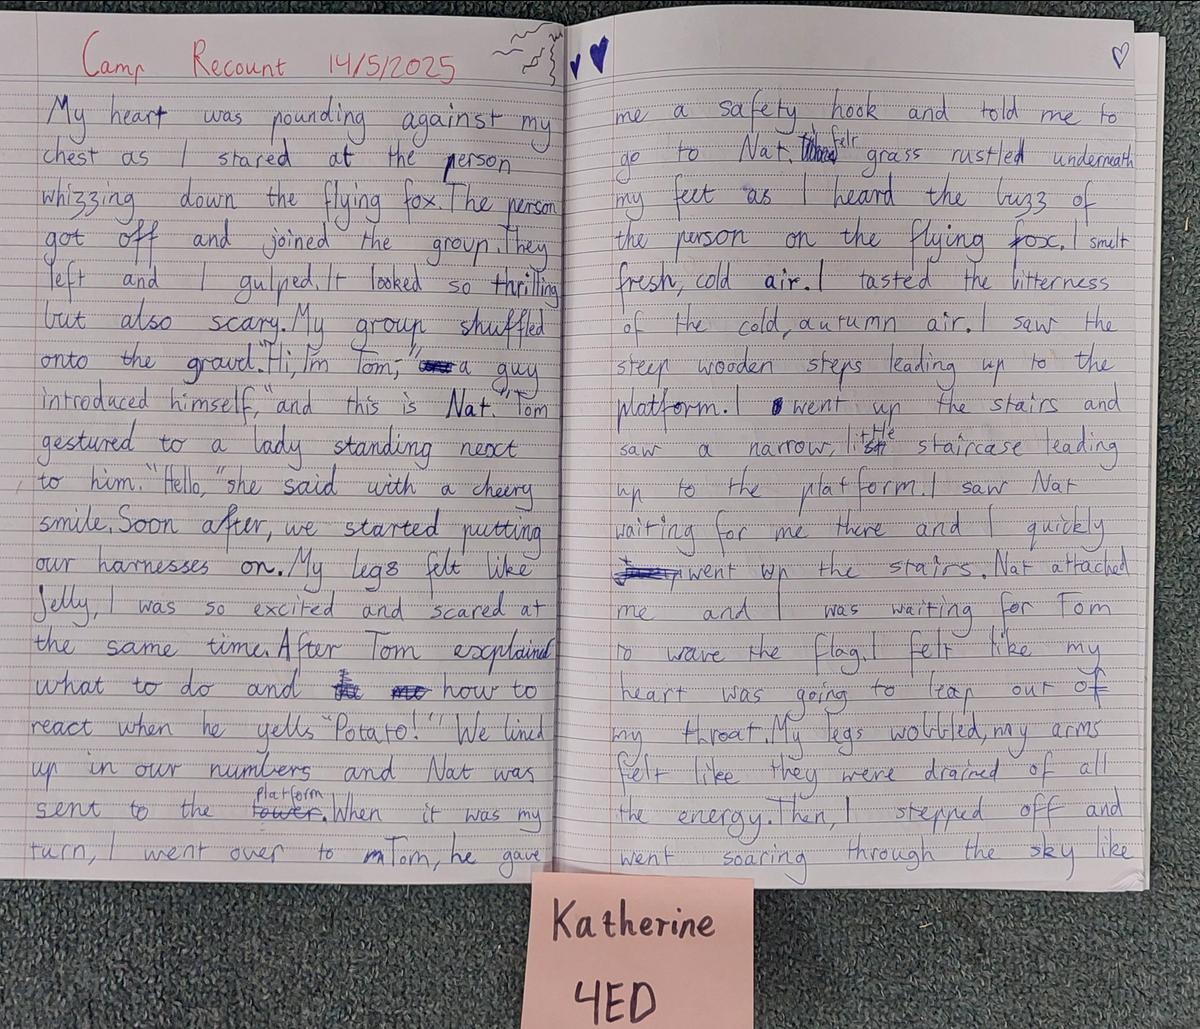 Camp Recount 14/5/2025
My heart was pounding against my
chest as I stared at the person
whizzing down the flying fox. The person
got off and joined the group. They
left and I gulped. It looked so thrilling
but also scary. My group shuffled
onto the gravel. "Hi, I'm Tom," a guy
introduced himself, "and this is Nat." Tom
gestured to a lady standing next
to him. "Hello," she said with a cheery
smile. Soon after, we started putting
our harnesses on. My legs felt like
Jelly, I was so excited and scared at
the same time. After Tom explained
what to do and how to
react when he yells "Potato!" We lined
up in our numbers and Nat was
platform
sent to the tower. When it was my
turn, I went over to Tom, he gave
me a safety hook and told me to
go to Nat. I felt grass rustled underneath
my feet as I heard the buzz of
the person on the flying fox. I smelt
fresh, cold air. I tasted the bitterness
of the cold, autumn air. I saw the
steep wooden steps leading up to the
platform. I went up the stairs and
saw a narrow, little staircase leading
up to the platform. I saw Nat
waiting for me there and I quickly
went up the stairs. Nat attached
me and I was waiting for Tom
to wave the flag. I felt like my
heart was going to leap out of
my throat. My legs wobbled, my arms
felt like they were drained of all
the energy. Then, I stepped off and
went soaring through the sky like
Katherine
4ED